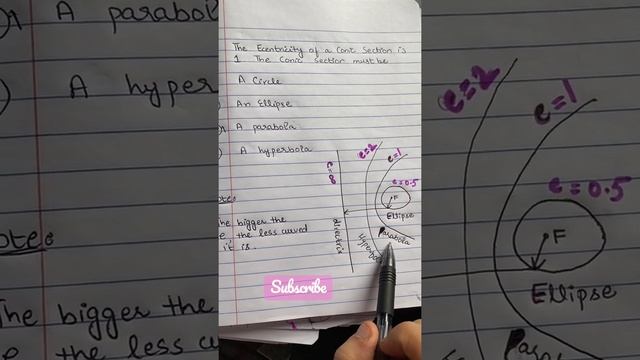 The Eccentricity of a Conic Section is
1 The Conic section must be
A Circle
An Ellipse
A parabola
A hyperbola
e=2
e=1
e=0.5
F
Ellipse
Parabola
directrix
The bigger the
e the less curved
it is.
Subscribe
A parabola
A hyper
The bigger the
e the less
e=2
e=1
e=0.5
F
Ellipse